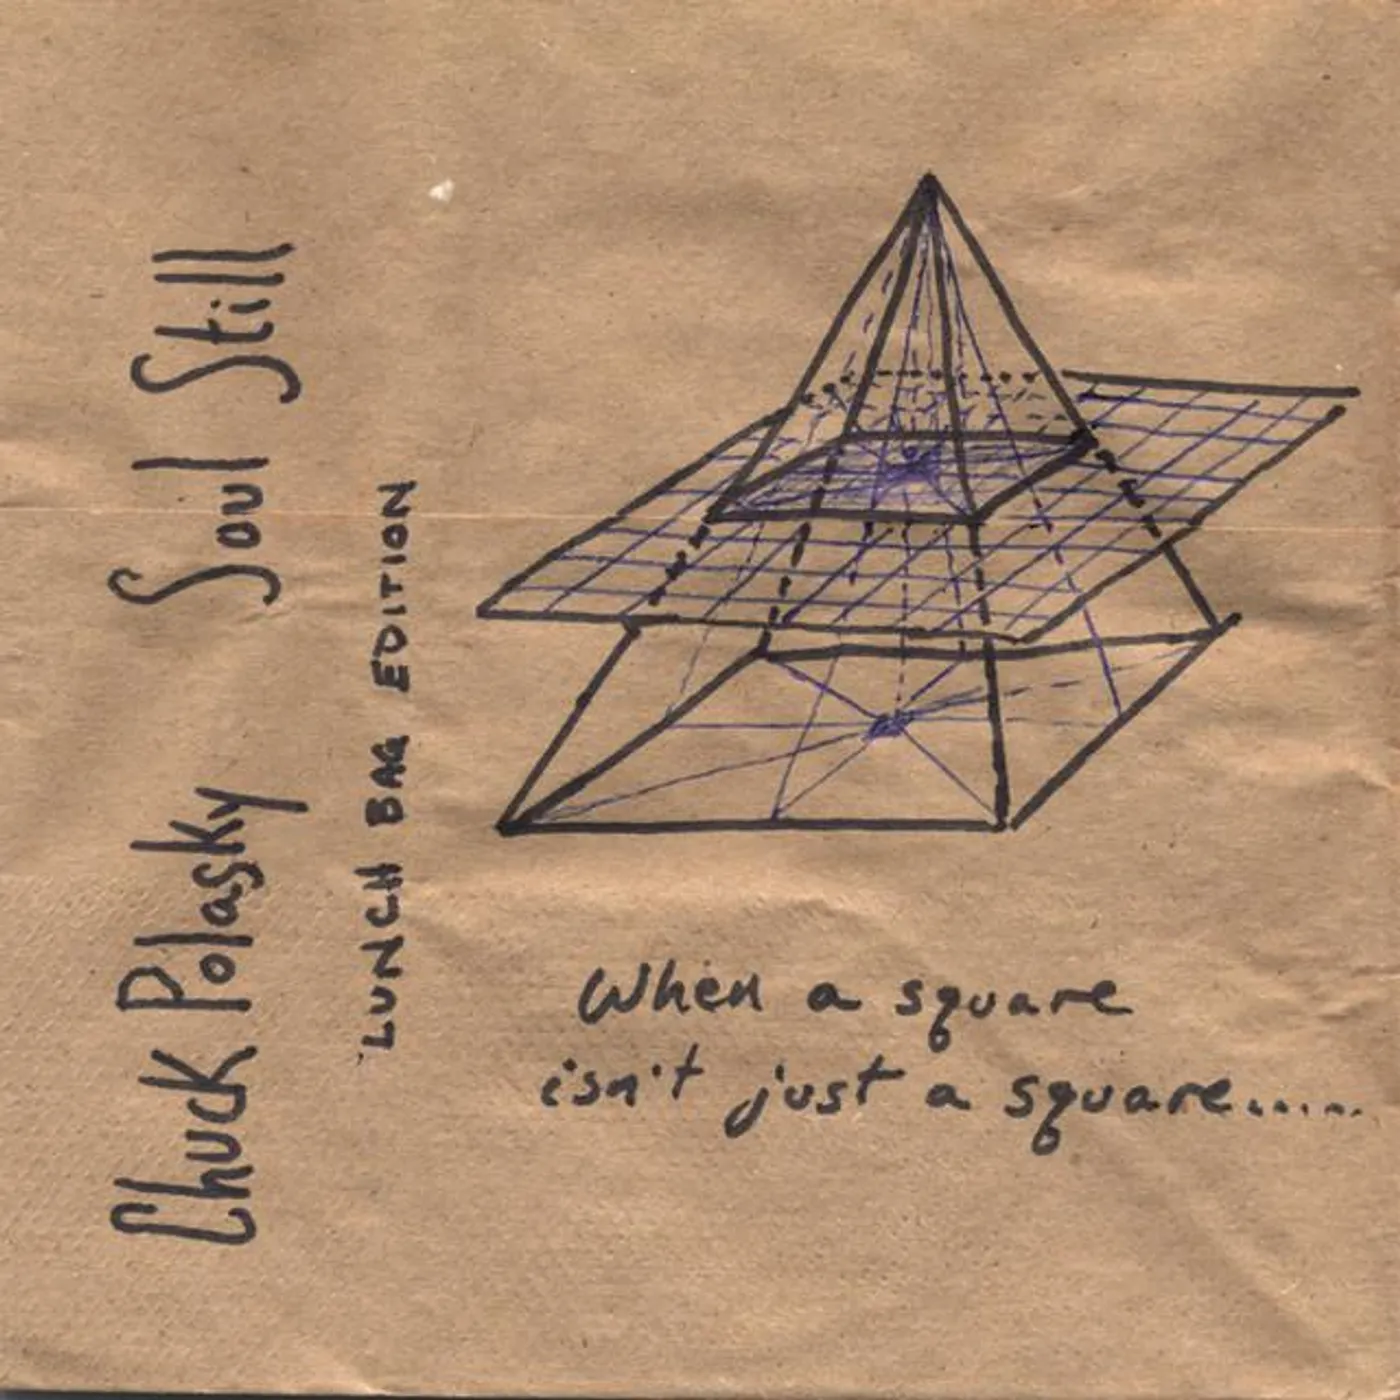 Chuck Polasky Soul Still
LUNCH BAG EDITION
When a square
isn't just a square.....